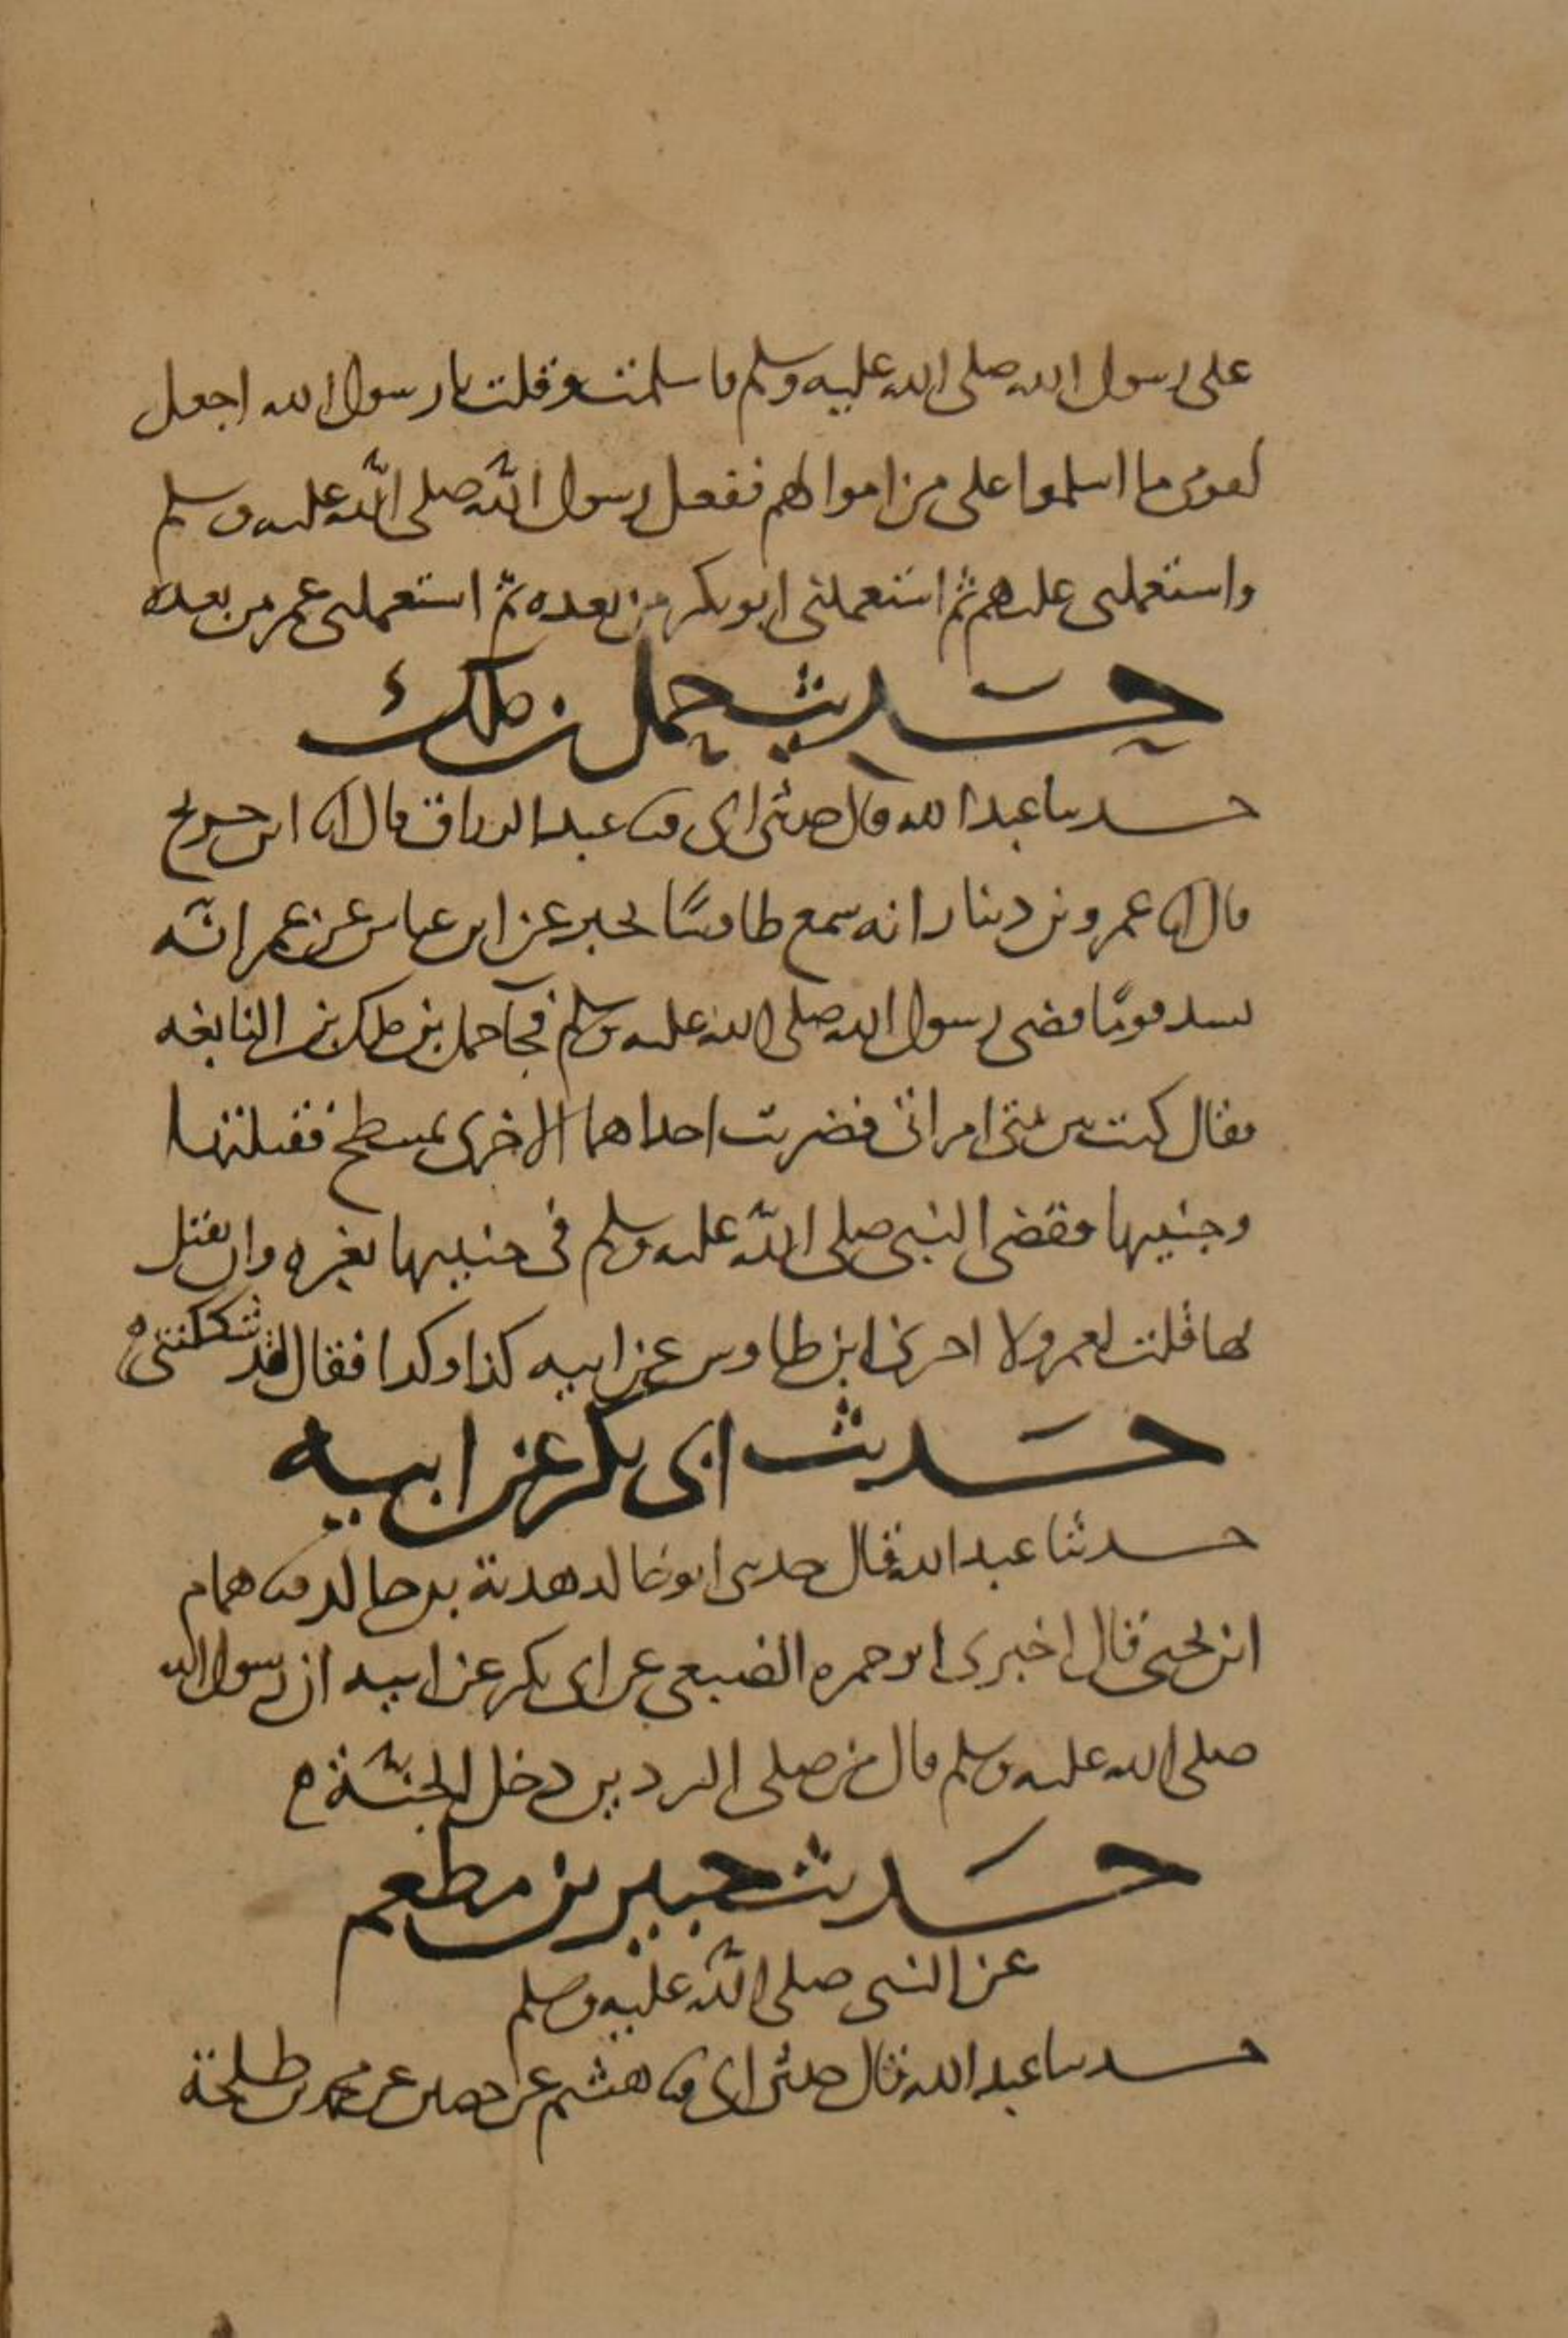 على رسول الله صلى الله عليه وسلم فاسلمت وقلت يا رسول الله اجعل
لقومى ما اسلموا على من اموالهم ففعل رسول الله صلى الله عليه وسلم
واستعملنى عليهم ثم استعملنى ابو بكر من بعده ثم استعملنى عمر من بعده
حديث حمل بن ملك
حدثنا عبد الله قال حدثنى ابى ثنا عبد الرزاق قال انا ابن جريج
قال انا عمرو بن دينار انه سمع طاوسًا يخبر عن ابن عباس عن عمر انه
نشد قضى رسول الله صلى الله عليه وسلم فجآ حمل بن ملك بن النابغه
فقال كنت بين امراتى فضربت احداهما الاخرى بمسطح فقتلتها
وجنينها فقضى النبى صلى الله عليه وسلم فى جنينها بغره وان تقتل
بها قلت لعمرو لا اخبرنى ابن طاوس عن ابيه كذا وكذا فقال لقد شككتنى
حديث ابى بكر عن ابيه
حدثنا عبد الله قال حدثنى ابو خالد هدبة بن خالد ثنا همام
ابن يحيى قال اخبرنى ابو جمره الضبعى عن ابى بكر عن ابيه ان رسول الله
صلى الله عليه وسلم قال من صلى البردين دخل الجنة
حديث جبير بن مطعم
عن النبى صلى الله عليه وسلم
حدثنا عبد الله قال حدثنى ابى ثنا هشيم عن حصين عن محمد بن طلحة